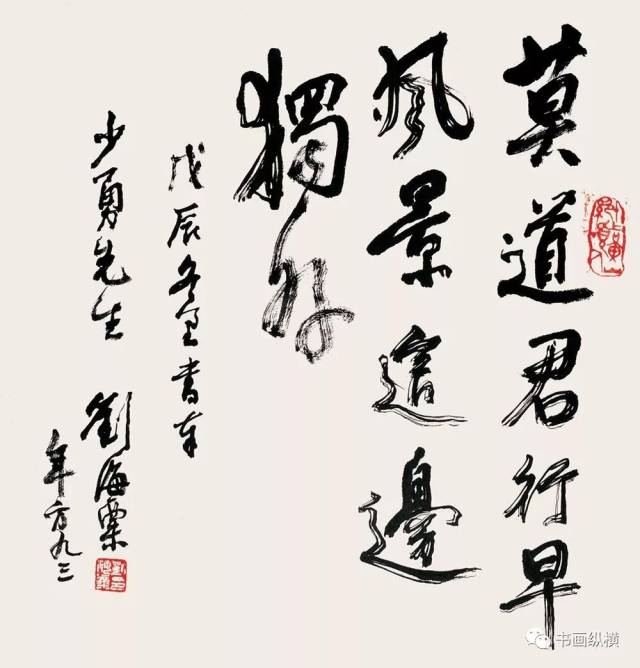 莫道君行早
風景這邊
獨好
戊辰冬至書奉
少勇先生
劉海粟
年方九三
书画纵横